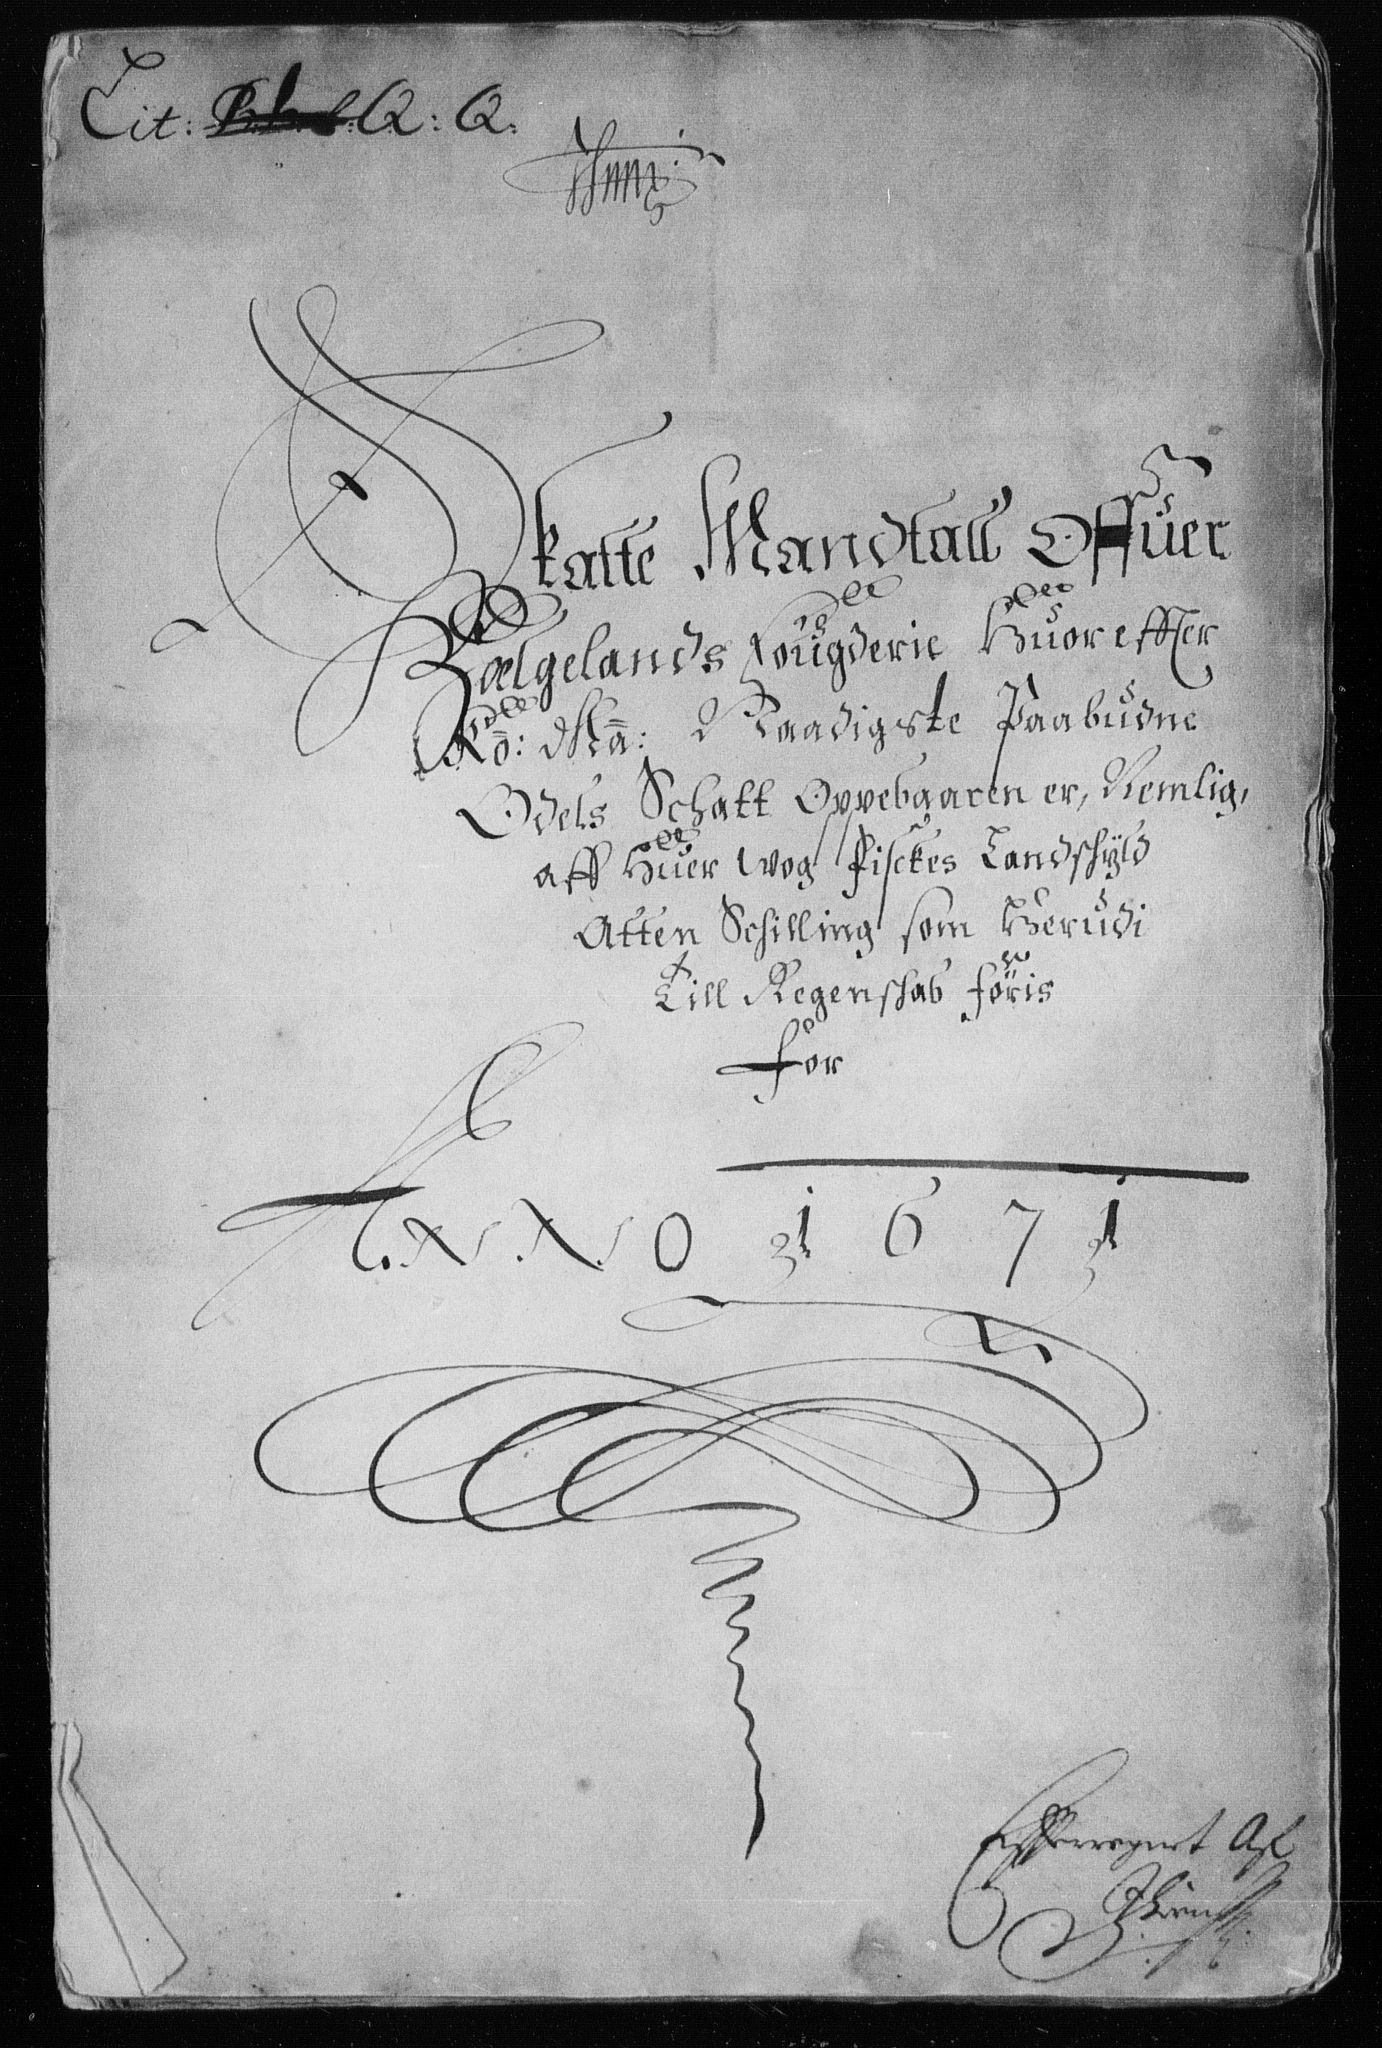 Lit: Q: Q:
Skatte Mandtall Offuer
Hælgelands fougderie Huor effter
Kō: Mā: Naadigste Paabudne
Odels Schatt Oppebaaren er, Nemlig,
aff Huer wog Fisckes Landschyld
Atten Schilling som Herudi
Till Regenschab føris
for
ANNO 1671
Efterregnet Af